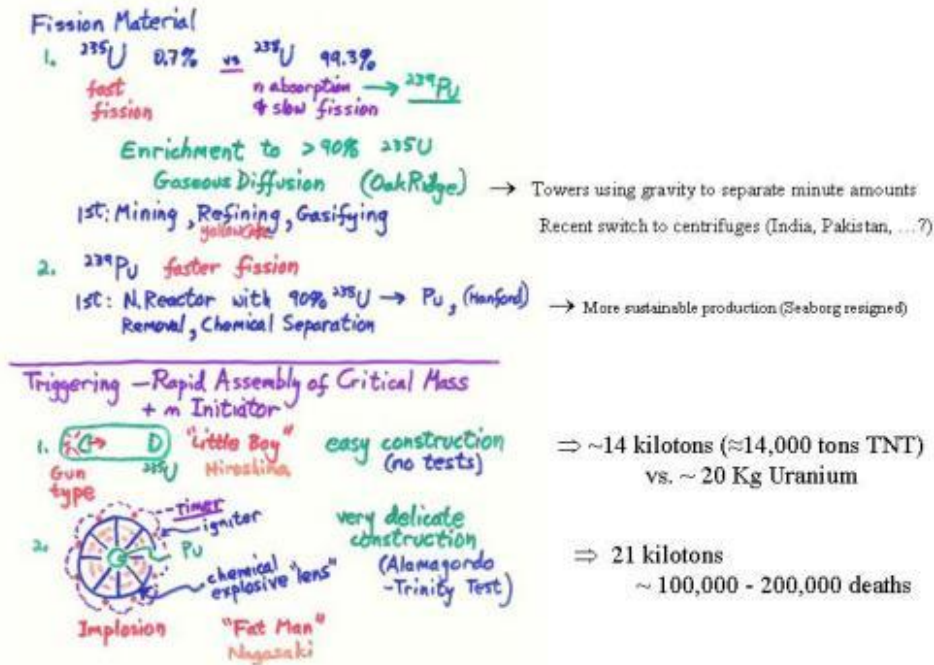 Fission Material
1. ²³⁵U 0.7% vs ²³⁸U 99.3%
fast fission
n absorption & slow fission → ²³⁹Pu
Enrichment to >90% ²³⁵U
Gaseous Diffusion (OakRidge)
→ Towers using gravity to separate minute amounts
1st: Mining, Refining, Gasifying
yellow cake
Recent switch to centrifuges (India, Pakistan, …?)
2. ²³⁹Pu faster fission
1st: N.Reactor with 90% ²³⁵U → Pu, (Hanford)
→ More sustainable production (Seaborg resigned)
Removal, Chemical Separation
Triggering – Rapid Assembly of Critical Mass
+ n Initiator
1. "Little Boy" easy construction
⇒ ~14 kilotons (≈14,000 tons TNT)
Gun type
²³⁵U
Hiroshima
(no tests)
vs. ~ 20 Kg Uranium
2.
timer
ignitor
Pu
chemical explosive "lens"
very delicate
construction
(Alamagordo
-Trinity Test)
⇒ 21 kilotons
~ 100,000 - 200,000 deaths
Implosion
"Fat Man"
Nagasaki